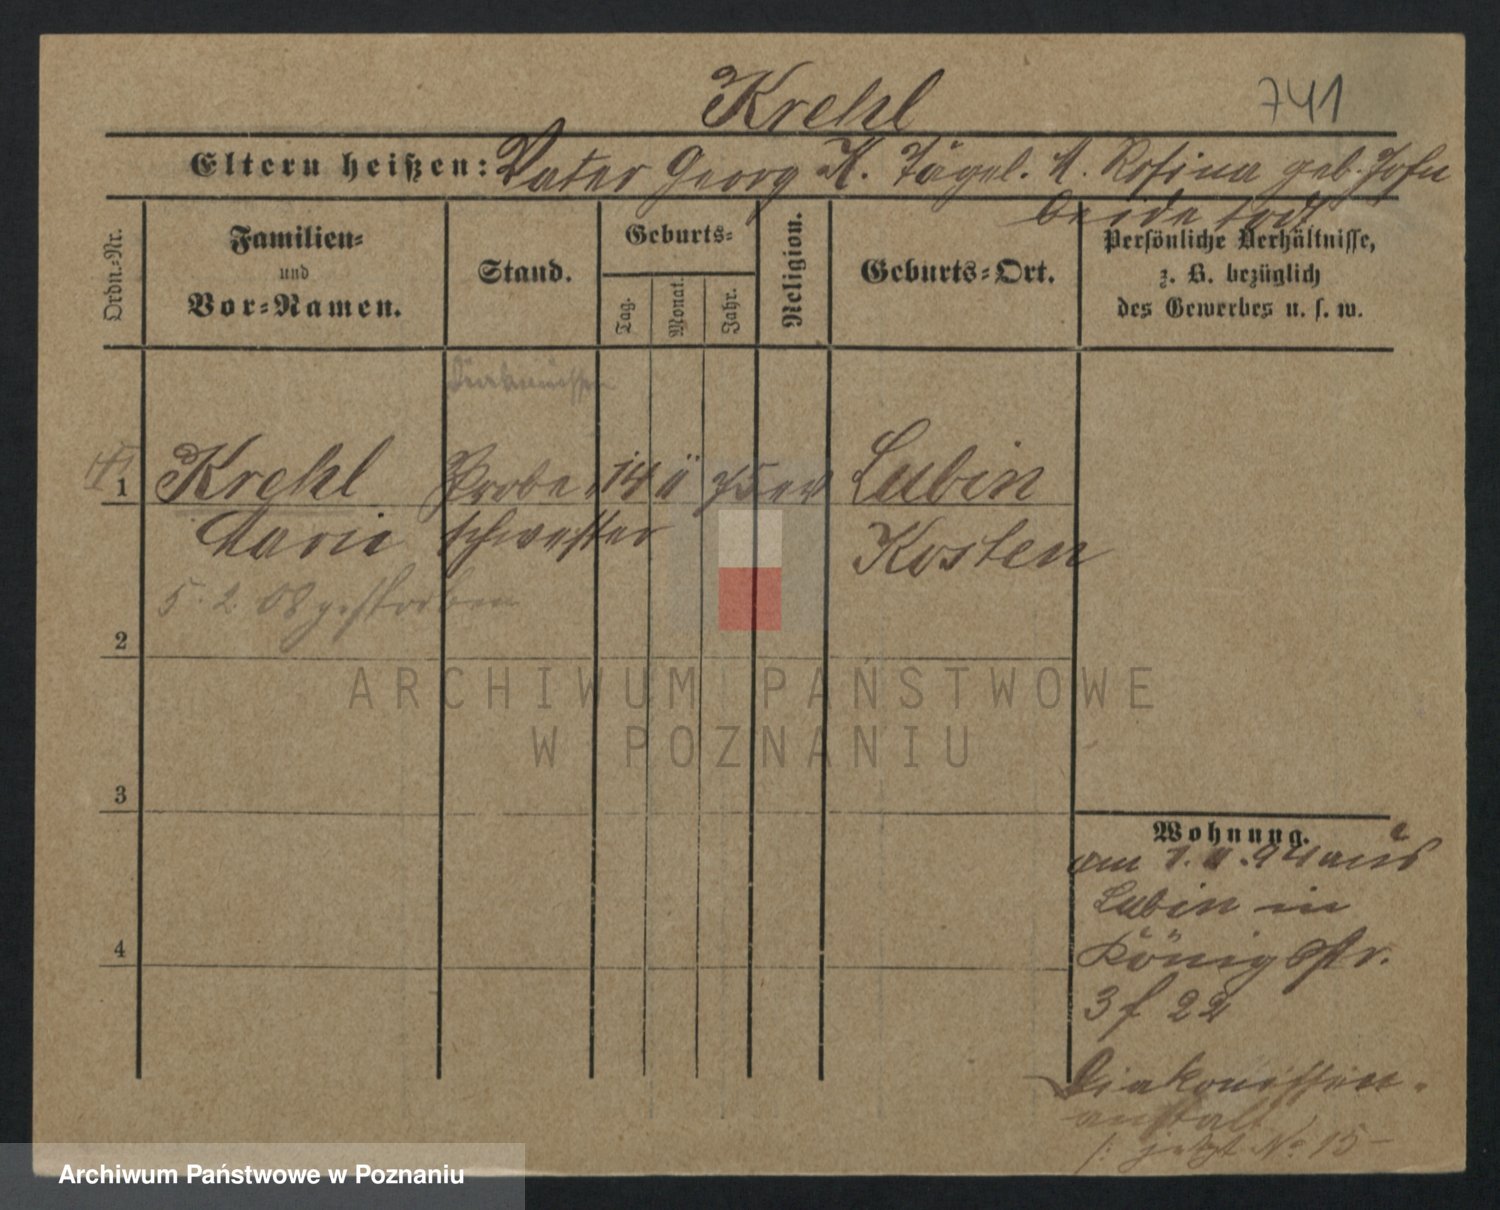 Krehl
741
Eltern heißen: Vater Georg K. Tägel. M. Rosina geb. John
beide todt
Ordn.-Nr.
Familien-
und
Vor-Namen.
Stand.
Geburts-
Tag.
Monat.
Jahr.
Religion.
Geburts-Ort.
Persönliche Verhältnisse,
z. B. bezüglich
des Gewerbes u. s. w.
Diakonissin
1 Krehl Probe 14 11 75 ev Lubin
Marie schwester Kosten
5. 2. 08 gestorben
2
3
4
Wohnung.
am 1. 11. 94 aus
Lubin in
Königstr.
3 f 22
Diakonissen-
anstalt
jetzt No 15
ARCHIWUM PAŃSTWOWE
W POZNANIU
Archiwum Państwowe w Poznaniu